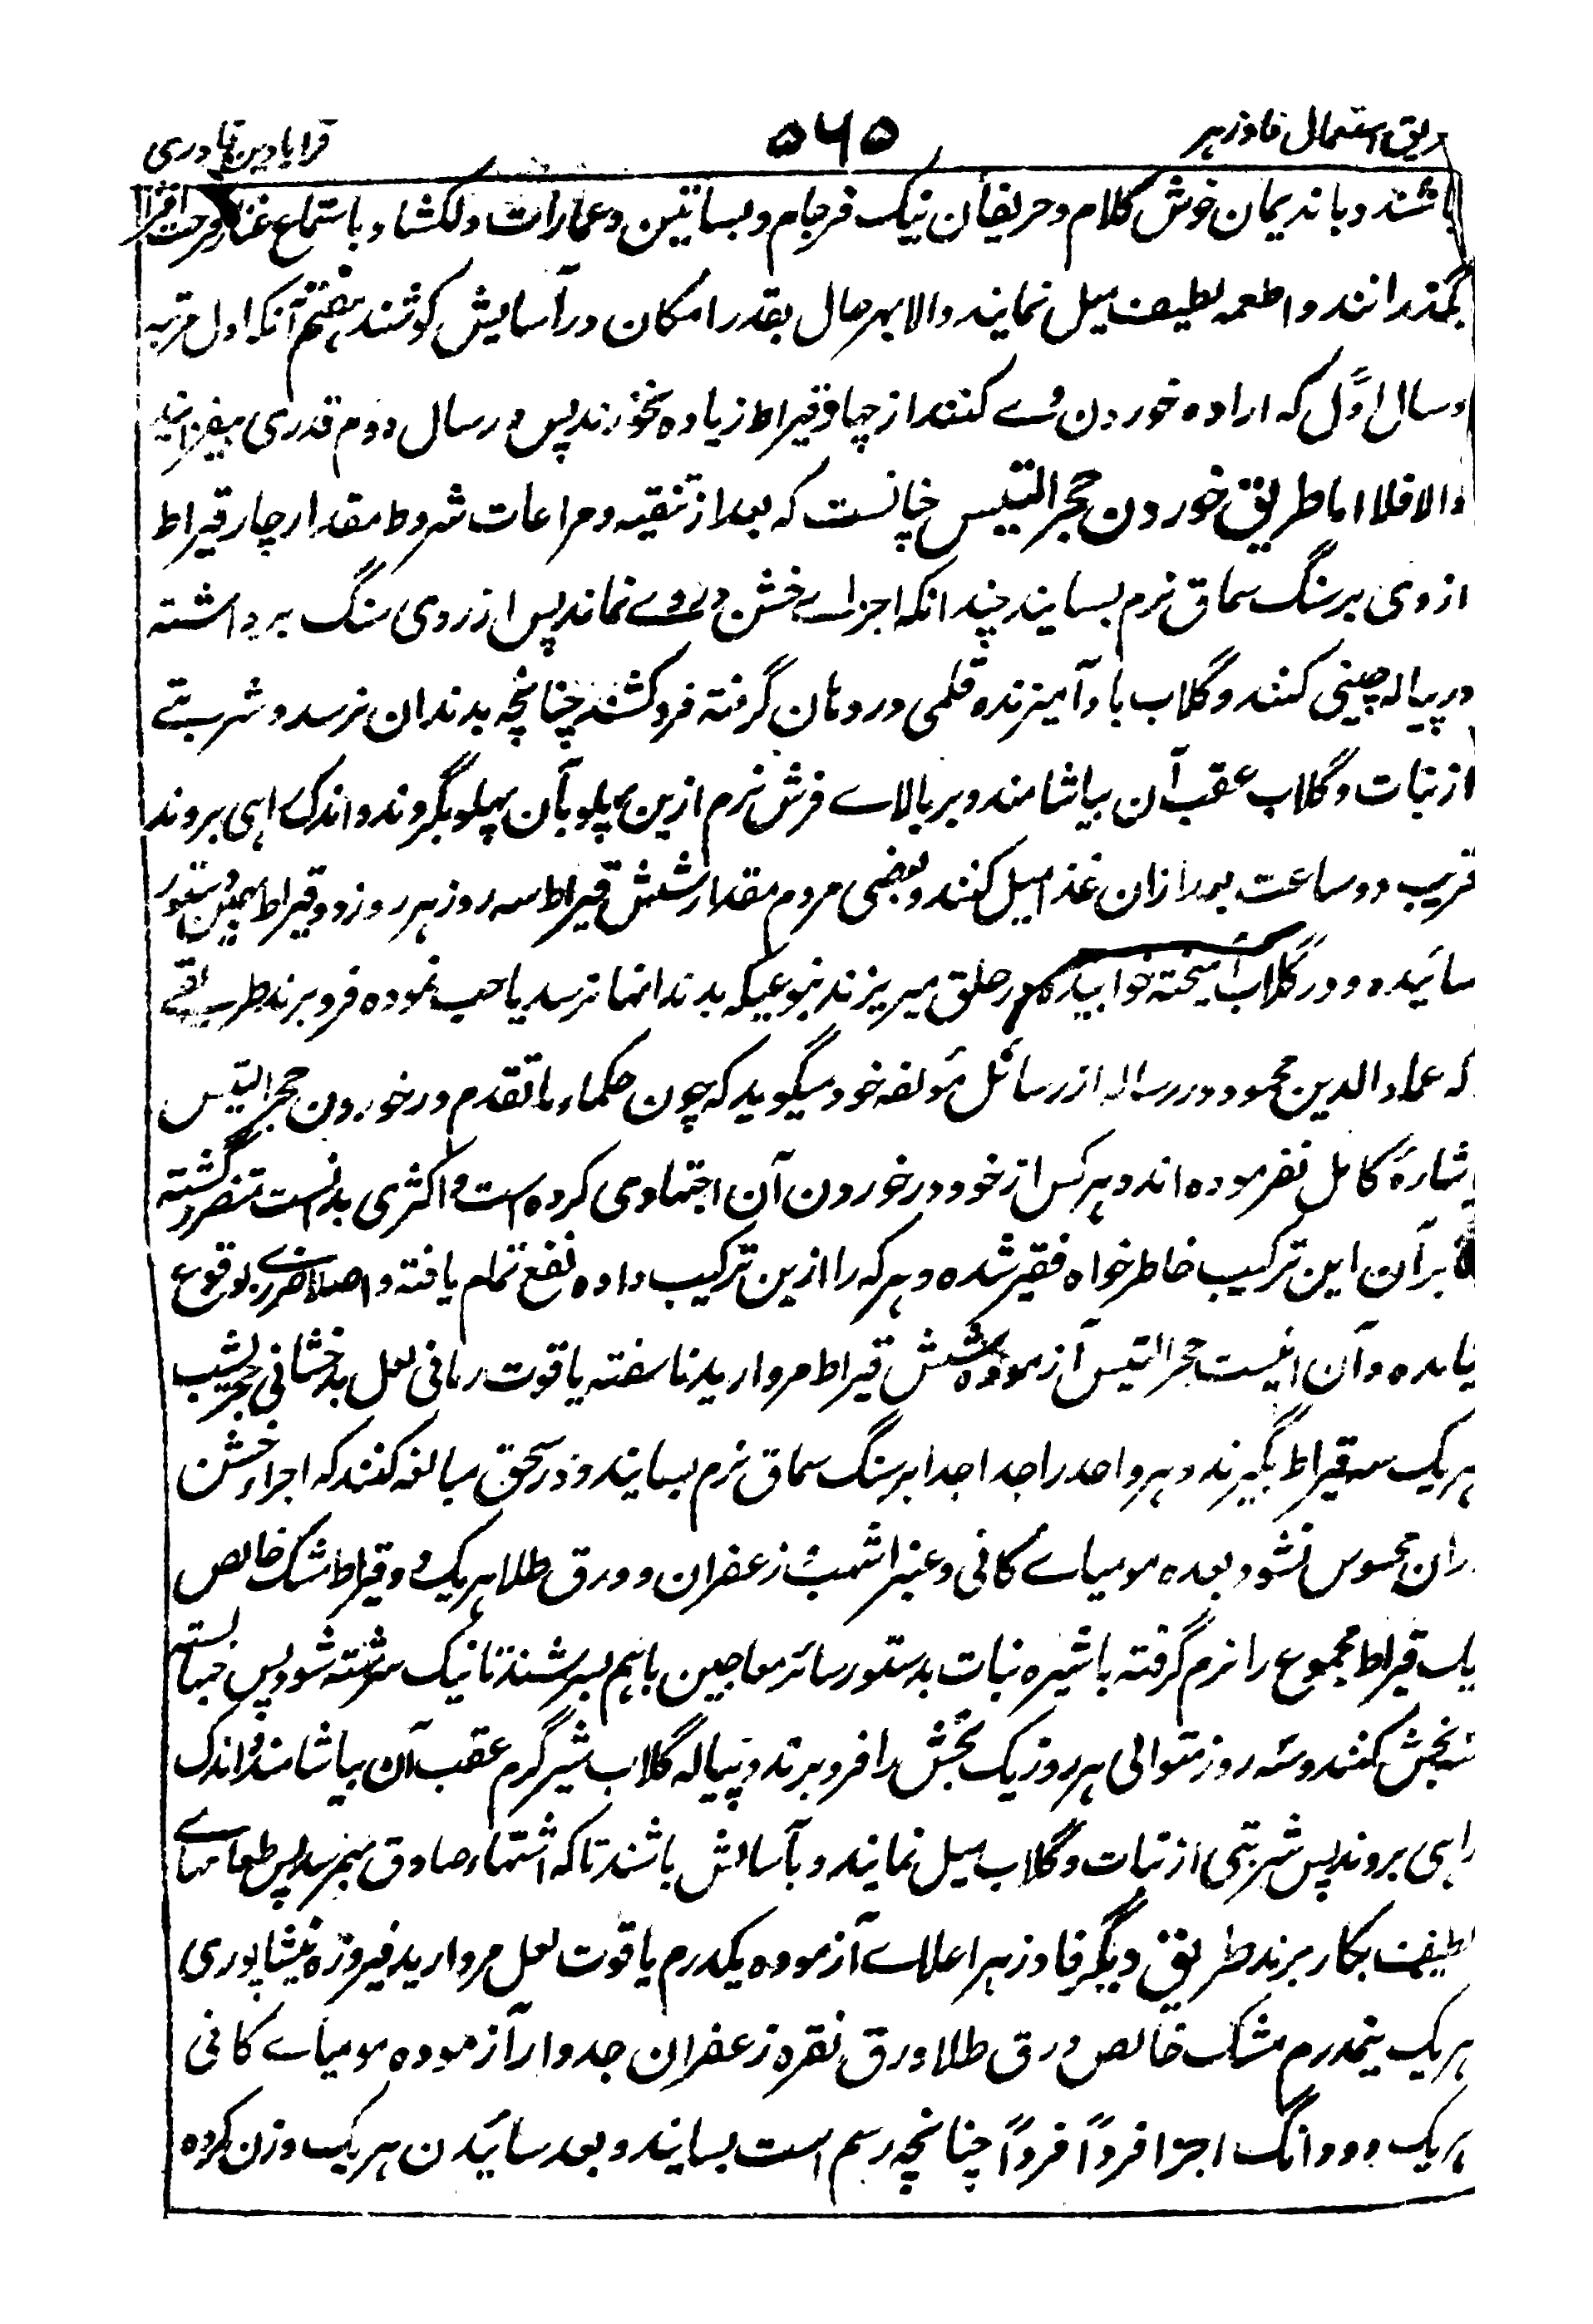 طریق استعمال فادزهر ۵۶۵ قرابادین قادری
باشند و با ندیمان خوش کلام و حریفان نیک فرجام و بساتین و عمارات دلکشا و باستماع غناء فرحت افزا
بگذرانند و اطعمه لطیف میل نمایند والا بهر حال بقدر امکان در آسایش کوشند هفتم آنکه اول مرتبه
و سال اوّل که اراده خوردن وے کنند از چهار قیراط زیاده نخورند پس در سال دوم قدری بیفزایند
والا فلا اما طریق خوردن حجر التیس چنانست که بعد از تنقیه و مراعات شروط مقدار چار قیراط
از وی بر سنگ سماق نرم بسایند چندانکه اجزاے خشن در وے نماند پس از روی سنگ برداشته
در پیاله چینی کنند و گلاب باو آمیزند و قلمی در دهان گرفته فرو کشند چنانچه بدندان نرسد و شربتے
از نبات و گلاب عقب آن بیاشامند و بر بالاے فرش نرم ازین پهلو بآن پهلو بگروند و اندک راهی بروند
قریب دو ساعت بعد ازان غذا میل کنند و بعضی مردم مقدار شش قیراط سه روز هر روز دو قیراط بهمین دستور
سائیده و در گلاب آمیخته خوابیده در حلق میریزند بنوعیکه بدندانها نرسد یا حب نموده فرو برند طریقے
که عماد الدین محمود در رساله از رسائل مؤلفه خود میگوید که چون حکماء ما تقدم در خوردن حجر التیس
اشارهٔ کامل نفرموده اند و هر کس از خود در خوردن آن اجتهادی کرده است و اکثری بدانست متضرر گشته
بر آن این ترکیب خاطر خواه فقیر شده و هر که را ازین ترکیب داده نفع تمام یافته و اصلا ضررے بوقوع
نیامده و آن اینست حجر التیس آزموده شش قیراط مروارید ناسفته یاقوت رمانی لعل بدخشانی حجر یشب
هریک سه قیراط بگیرند و هر واحد را جدا جدا بر سنگ سماق نرم بسایند و در سحق مبالغه کنند که اجزاء خشن
دران محسوس نشود بعده مومیاے کانی و عنبر اشهب زعفران و ورق طلا هریک دو قیراط مشک خالص
یک قیراط مجموع را نرم گرفته با شیره نبات بدستور سائر معاجین باهم بسرشند تا نیک سرشته شود پس حبها بسته
سه بخش کنند و سه روز متوالی هر روز یک بخش را فرو برند و پیاله گلاب شیر گرم عقب آن بیاشامند و اندک
راهی بروند پس شربتی از نبات و گلاب میل نمایند و بآسایش باشند تا که اشتهاء صادق بهم رسد پس طعامهاے
لطیف بکار برند طریق دیگر فادزهر اعلاے آزموده یکدرم یاقوت لعل مروارید فیروزه نیشاپوری
هریک نیمدرم مشک خالص ورق طلا ورق نقره زعفران جدوار آزموده مومیاے کانی
هریک دو دانگ اجزا فرداً فرداً چنانچه رسم است بسایند و بعد سائیدن هریک وزن کرده